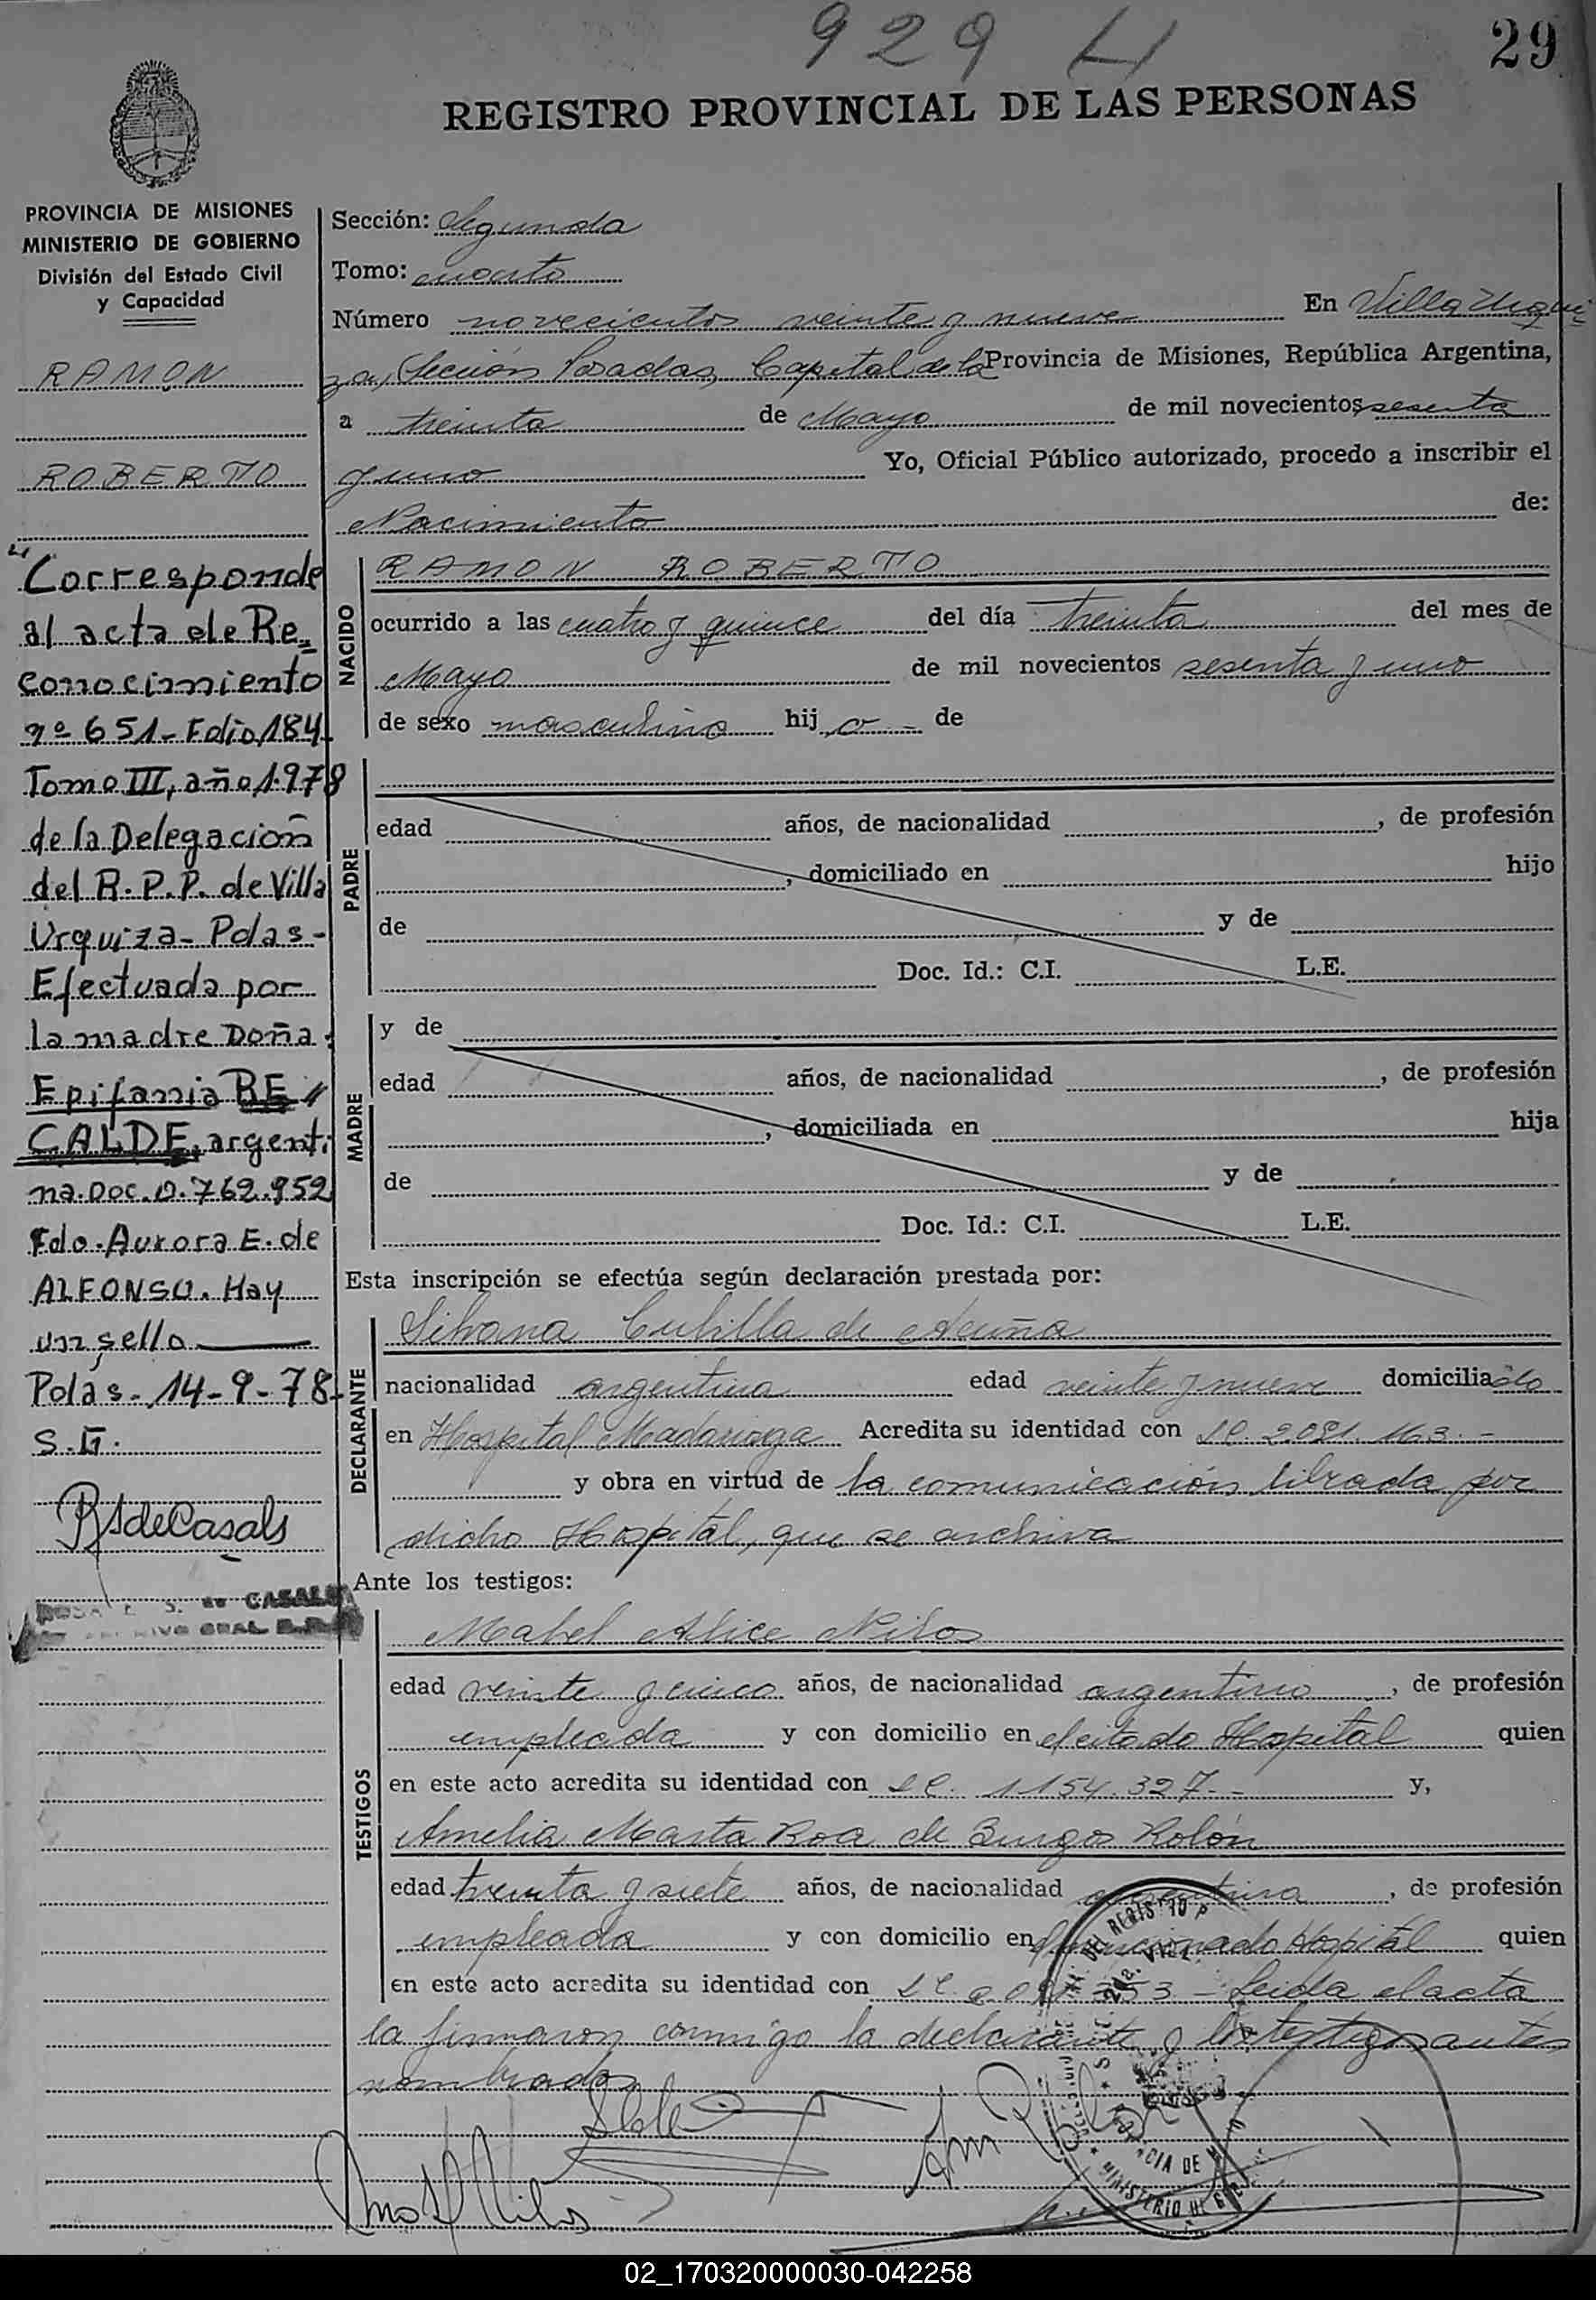 929 H
29
REGISTRO PROVINCIAL DE LAS PERSONAS
PROVINCIA DE MISIONES
MINISTERIO DE GOBIERNO
División del Estado Civil
y Capacidad
RAMON
ROBERTO
"Corresponde
al acta de Re=
conocimiento
nº 651- Folio 184-
Tomo III, año 1.978
de la Delegación
del R.P.P. de Villa
Urquiza- Pdas-
Efectuada por
la madre Doña:
Epifania RE
CALDE, argenti
na. Doc. 0.762.952
Fdo. Aurora E. de
ALFONSO. Hay
un sello
Pdas- 14-9-78-
S.G.
RSdeCasals
CASALS
Sección: Segunda
Tomo: cuarto
Número novecientos veinte y nueve En Villa Urqui
za, Sección Posadas, Capital de la Provincia de Misiones, República Argentina,
a treinta de Mayo de mil novecientos sesenta
y uno Yo, Oficial Público autorizado, procedo a inscribir el
Nacimiento de:
NACIDO
RAMON ROBERTO
ocurrido a las cuatro y quince del día treinta del mes de
Mayo de mil novecientos sesenta y uno
de sexo masculino hij o - de
PADRE
edad años, de nacionalidad , de profesión
, domiciliado en hijo
de y de
Doc. Id.: C.I. L.E.
MADRE
y de
edad años, de nacionalidad , de profesión
, domiciliada en hija
de y de
Doc. Id.: C.I. L.E.
Esta inscripción se efectúa según declaración prestada por:
DECLARANTE
Silvana Cubilla de Acuña
nacionalidad argentina edad veinte y nueve domiciliado
en Hospital Madariaga Acredita su identidad con LC. 2.021.163.-
y obra en virtud de la comunicación librada por
dicho Hospital, que se archiva
Ante los testigos:
TESTIGOS
Mabel Alice Niros
edad veinte y cinco años, de nacionalidad argentina , de profesión
empleada y con domicilio en el citado Hospital quien
en este acto acredita su identidad con LC. 1154.327.- y,
Amelia Marta Roa de Burgos Rolón
edad treinta y siete años, de nacionalidad argentina , de profesión
empleada y con domicilio en mencionado Hospital quien
en este acto acredita su identidad con LC - Leida el acta
la firmaron conmigo la declarante y los testigos antes
nombrados
02_170320000030-042258